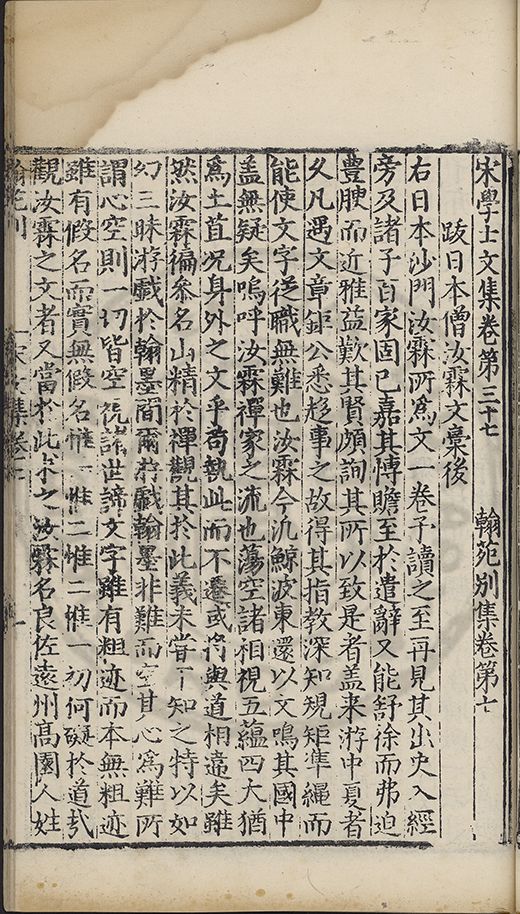 宋學士文集卷第三十七　翰苑別集卷第七
跋日本僧汝霖文稾後
右日本沙門汝霖所爲文一卷予讀之至再見其出史入經
旁及諸子百家固已嘉其愽贍至於遣辭又能舒徐而弗迫
豐腴而近雅益歎其賢頗詢其所以致是者盖来游中夏者
久凡遇文章鉅公悉趍事之故得其指教深知規矩準繩而
能使文字従職無難也汝霖今汎鯨波東還以文鳴其國中
盖無疑矣嗚呼汝霖禪家之流也蕩空諸相視五藴四大猶
爲土苴况身外之文乎苟執此而不遷或将與道相遠矣雖
然汝霖徧叅名山精於禪觀其於此義未甞不知之特以如
幻三昧游戲於翰墨間爾游戲翰墨非難而空其心爲難所
謂心空則一切皆空視諸世諦文字雖有粗迹而本無粗迹
雖有假名而實無假名惟一惟二惟二惟一初何礙於道哉
觀汝霖之文者又當於此求之汝霖名良佐遠州髙園人姓